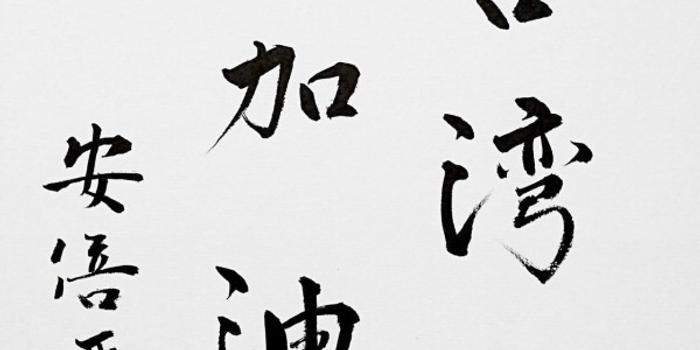 湾
加油
安倍